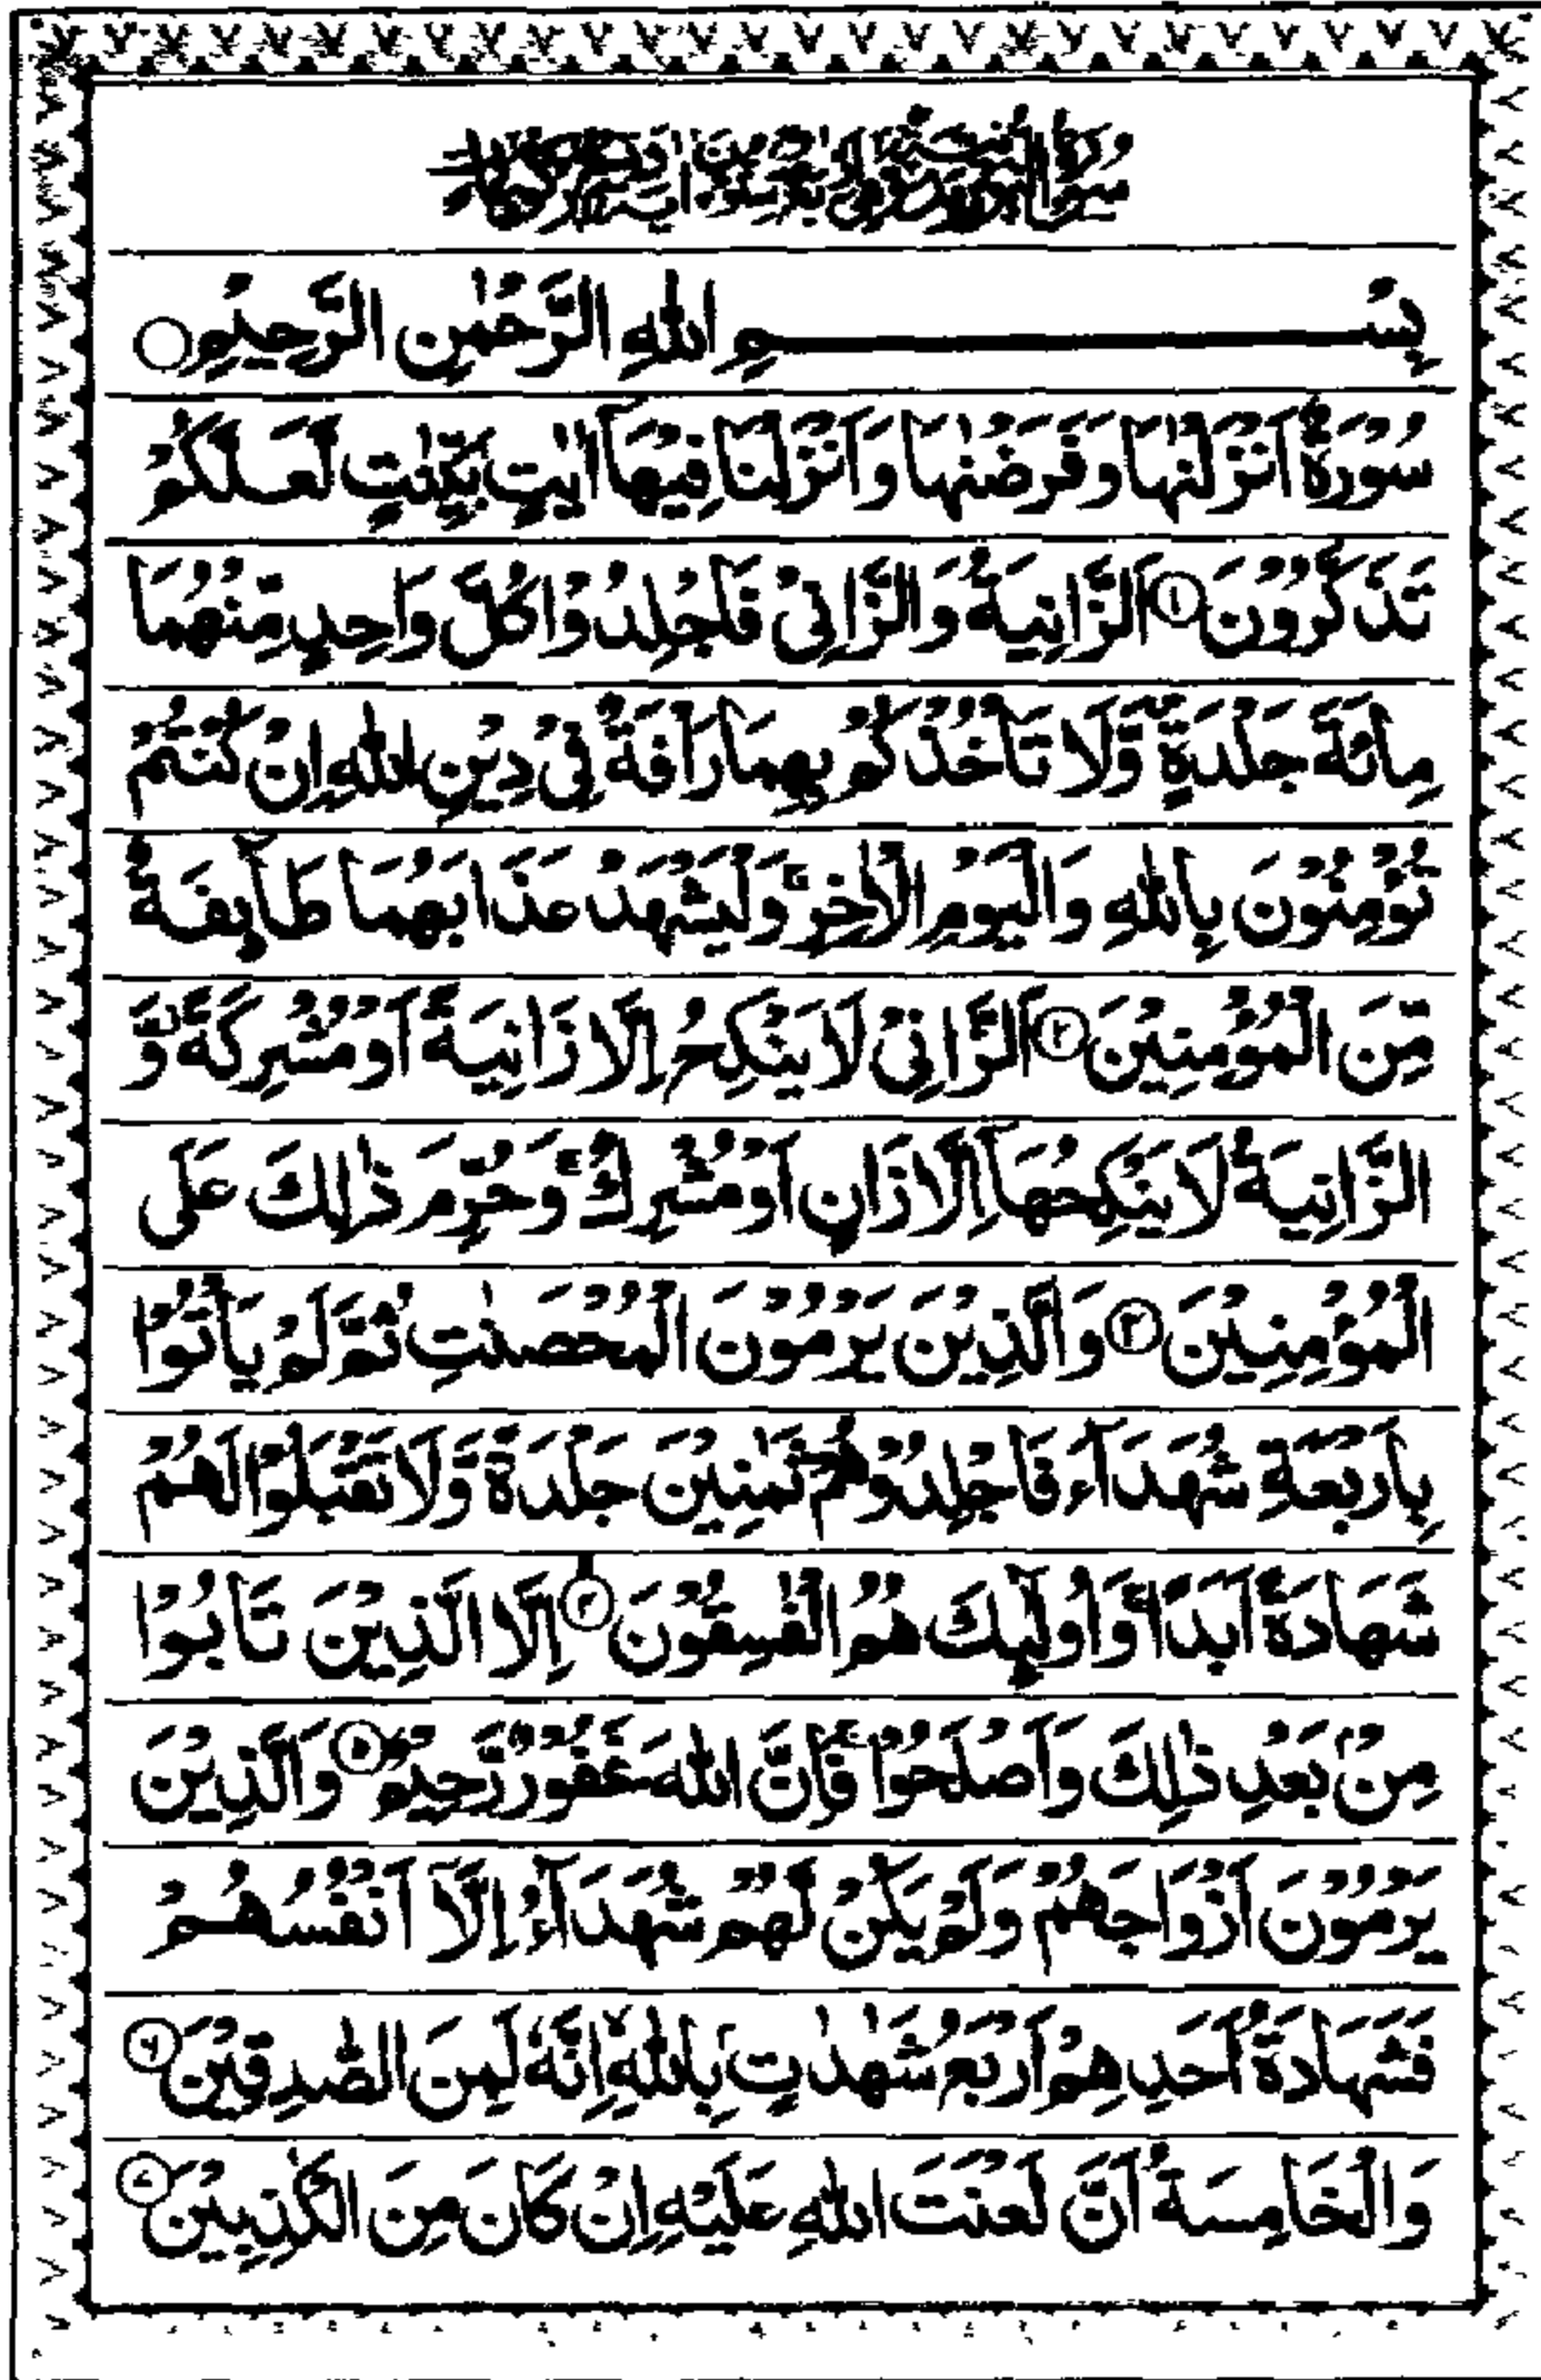 بِسْمِ اللهِ الرَّحْمٰنِ الرَّحِيْمِ ○
سُوْرَةٌ اَنْزَلْنٰهَا وَفَرَضْنٰهَا وَاَنْزَلْنَا فِيْهَآ اٰيٰتٍۭ بَيِّنٰتٍ لَّعَلَّكُمْ
تَذَكَّرُوْنَ ① اَلزَّانِيَةُ وَالزَّانِيْ فَاجْلِدُوْا كُلَّ وَاحِدٍ مِّنْهُمَا
مِائَةَ جَلْدَةٍ وَّلَا تَاْخُذْكُمْ بِهِمَا رَاْفَةٌ فِيْ دِيْنِ اللهِ اِنْ كُنْتُمْ
تُؤْمِنُوْنَ بِاللهِ وَالْيَوْمِ الْاٰخِرِ ۚ وَلْيَشْهَدْ عَذَابَهُمَا طَآىِٕفَةٌ
مِّنَ الْمُؤْمِنِيْنَ ② اَلزَّانِيْ لَا يَنْكِحُ اِلَّا زَانِيَةً اَوْ مُشْرِكَةً وَّ
الزَّانِيَةُ لَا يَنْكِحُهَآ اِلَّا زَانٍ اَوْ مُشْرِكٌ ۚ وَحُرِّمَ ذٰلِكَ عَلَى
الْمُؤْمِنِيْنَ ③ وَالَّذِيْنَ يَرْمُوْنَ الْمُحْصَنٰتِ ثُمَّ لَمْ يَاْتُوْا
بِاَرْبَعَةِ شُهَدَآءَ فَاجْلِدُوْهُمْ ثَمٰنِيْنَ جَلْدَةً وَّلَا تَقْبَلُوْا لَهُمْ
شَهَادَةً اَبَدًا ۚ وَاُولٰٓىِٕكَ هُمُ الْفٰسِقُوْنَ ④ اِلَّا الَّذِيْنَ تَابُوْا
مِنْۢ بَعْدِ ذٰلِكَ وَاَصْلَحُوْا ۚ فَاِنَّ اللهَ غَفُوْرٌ رَّحِيْمٌ ⑤ وَالَّذِيْنَ
يَرْمُوْنَ اَزْوَاجَهُمْ وَلَمْ يَكُنْ لَّهُمْ شُهَدَآءُ اِلَّآ اَنْفُسُهُمْ
فَشَهَادَةُ اَحَدِهِمْ اَرْبَعُ شَهٰدٰتٍۭ بِاللهِ ۙ اِنَّهٗ لَمِنَ الصّٰدِقِيْنَ ⑥
وَالْخَامِسَةُ اَنَّ لَعْنَتَ اللهِ عَلَيْهِ اِنْ كَانَ مِنَ الْكٰذِبِيْنَ ⑦